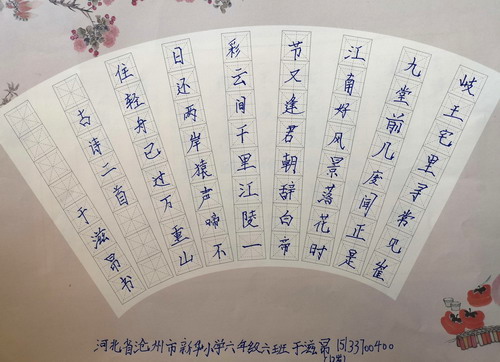 岐王宅里寻常见崔
九堂前几度闻正是
江南好风景落花时
节又逢君朝辞白帝
彩云间千里江陵一
日还两岸猿声啼不
住轻舟已过万重山
古诗二首 于滋昂书
河北省沧州市新华小学六年级六班 于滋昂